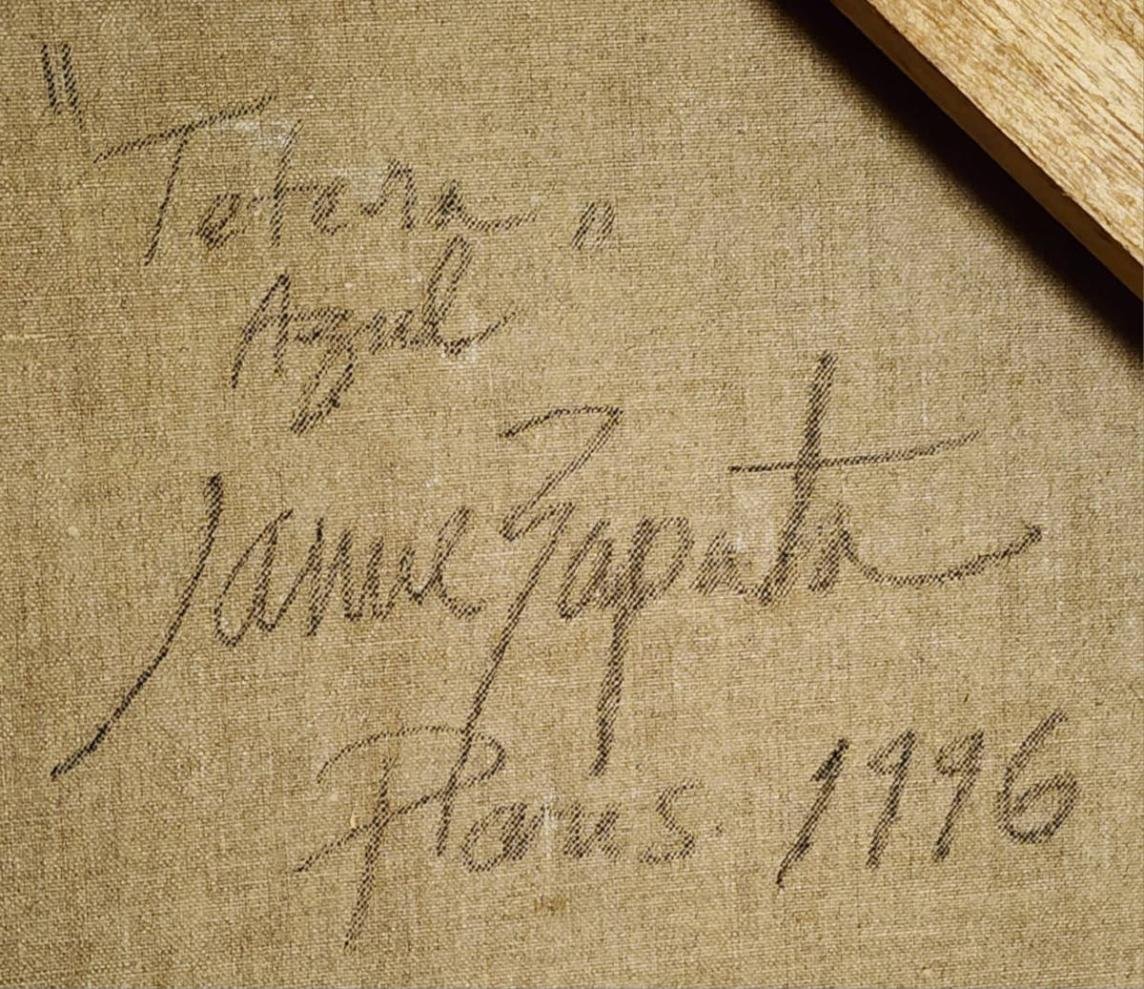 "Tetera"
Azul
Jaime Zapata
Paris 1996